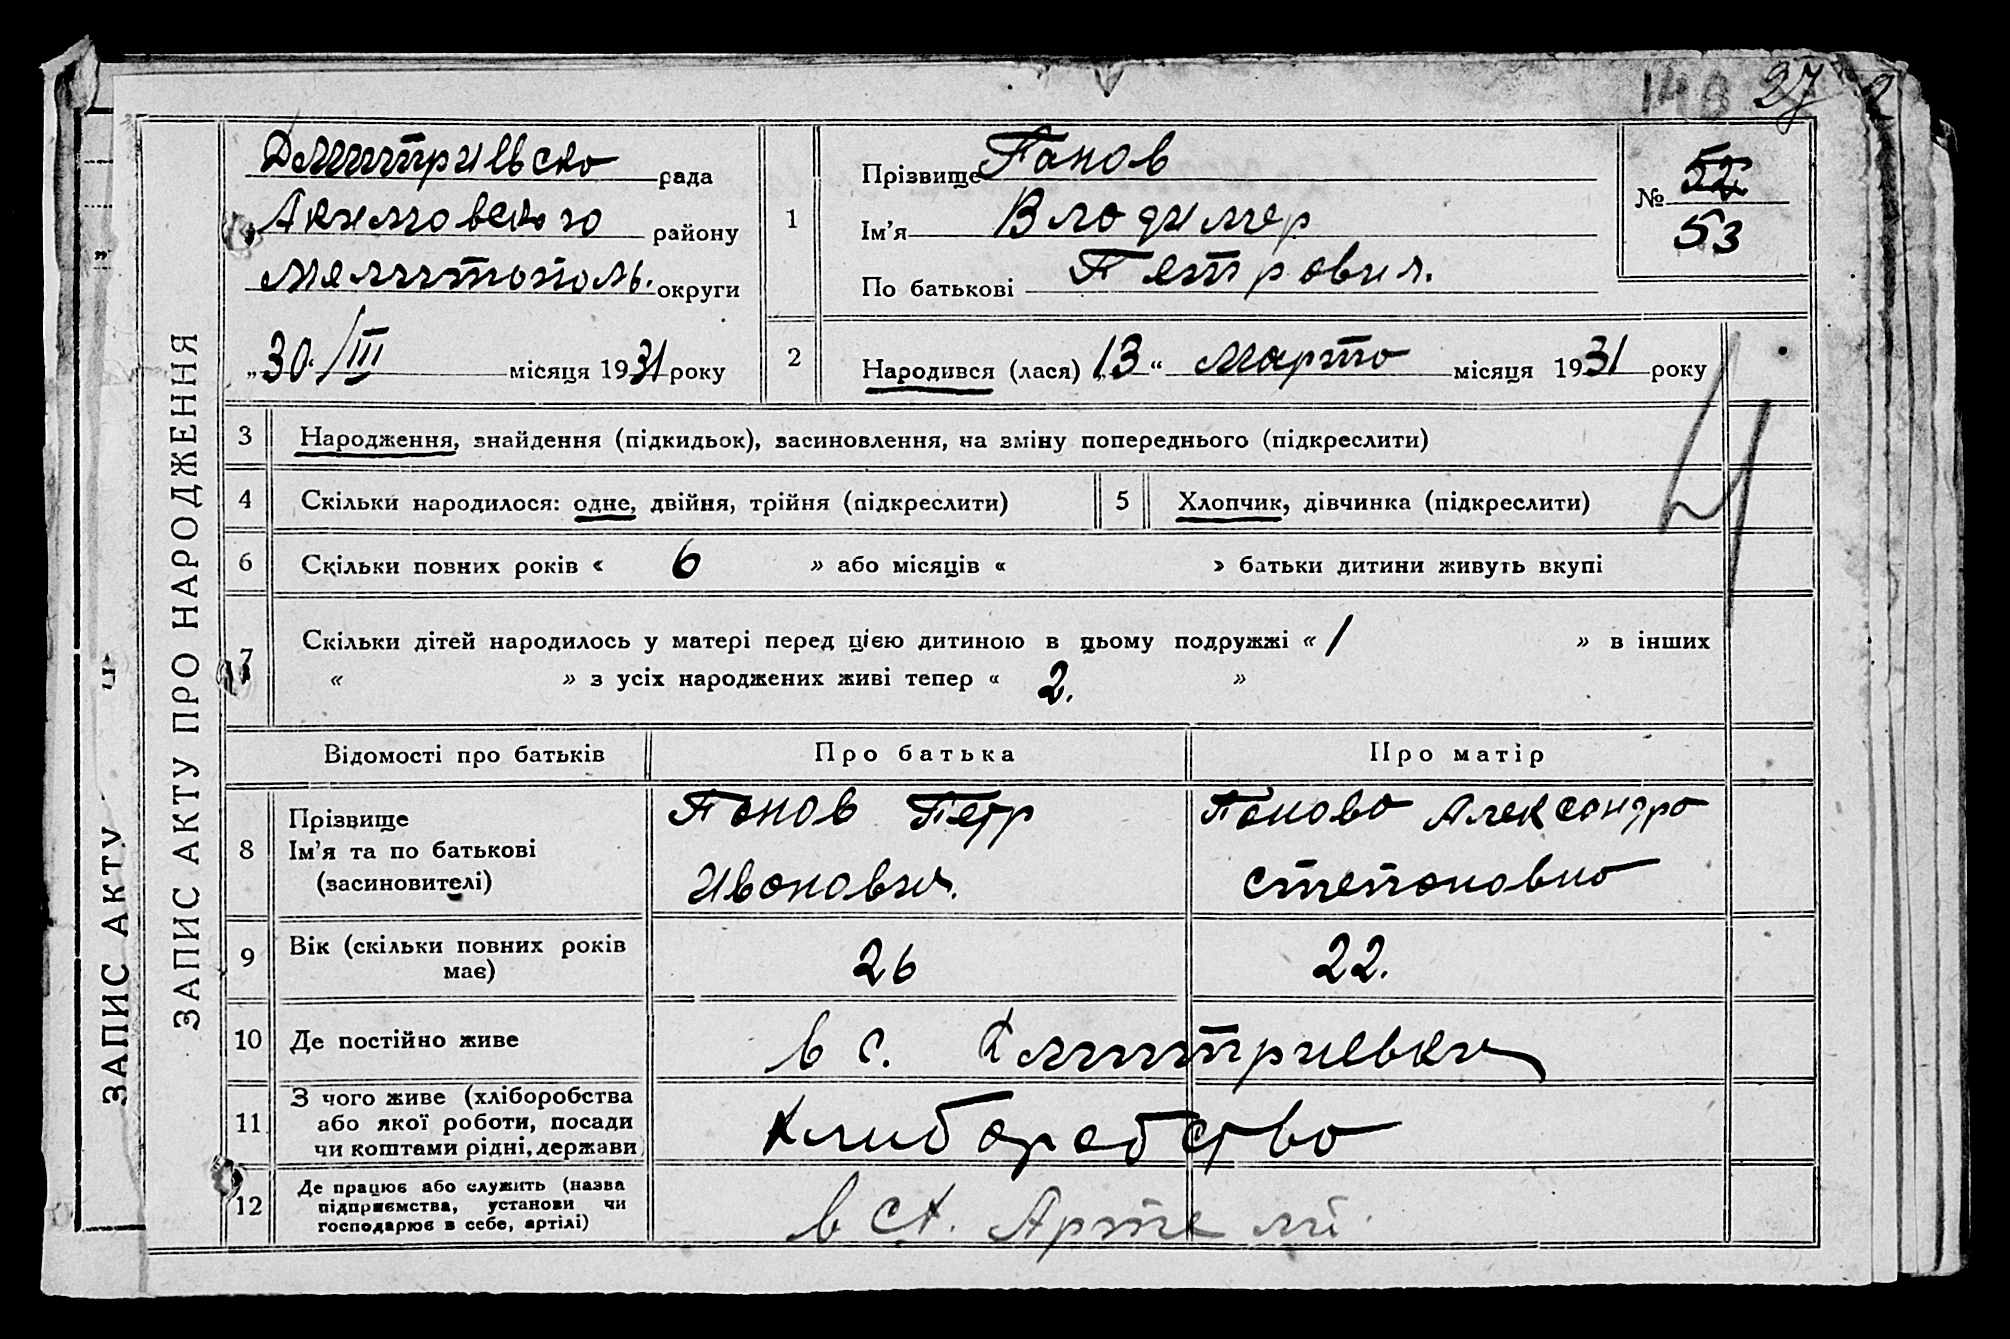 148 27 2
ЗАПИС АКТУ
ЗАПИС АКТУ ПРО НАРОДЖЕННЯ
Дмитриевско рада
Акимовского району
Мелитополь. округи
„30“/III місяця 1931 року
1
Прізвище Панов
Ім'я Владимер
По батькові Петрович.
№ 52
53
2
Народився (лася) „13“ Марта місяця 1931 року
3 Народження, знайдення (підкидьок), засиновлення, на зміну попереднього (підкреслити)
4 Скільки народилося: одне, двійня, трійня (підкреслити) 5 Хлопчик, дівчинка (підкреслити)
6 Скільки повних років « 6 » або місяців « » батьки дитини живуть вкупі
7 Скільки дітей народилось у матері перед цією дитиною в цьому подружжі « 1 » в інших
« » з усіх народжених живі тепер « 2. »
Відомості про батьків Про батька Про матір
8 Прізвище
Ім'я та по батькові
(засиновителі)
Панов Петр
Иванович.
Панова Александра
Степановна
9 Вік (скільки повних років
має)
26 22.
10 Де постійно живе в с. Дмитриевки
11 З чого живе (хліборобства
або якої роботи, посади
чи коштами рідні, держави
Хлиборобство
12 Де працює або служить (назва
підприємства, установи чи
господарює в себе, артілі)
в СА. Артели